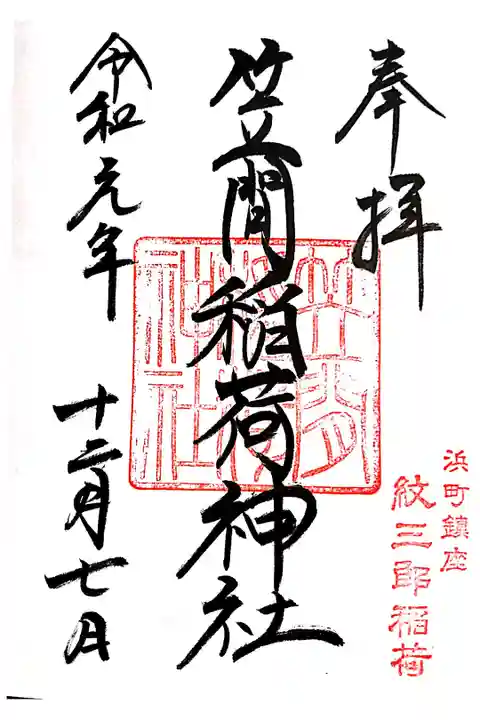 奉拝
浜町鎮座
紋三郎稲荷
笠間稲荷神社
笠間稲荷神社
令和元年 十二月七日